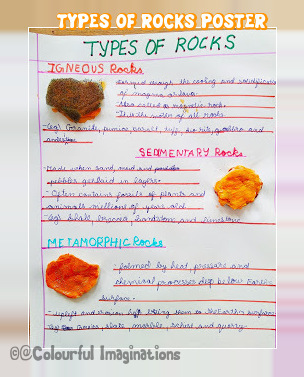 TYPES OF ROCKS POSTER
TYPES OF ROCKS
IGNEOUS Rocks
- formed through the cooling and solidification
of magma or lava.
- Also called as magmatic rock.
- It is the oldest of all rocks.
- (eg) Granite, pumice, basalt, tuff, diorite, gabbro and
andesite
SEDIMENTARY Rocks
- Made when sand, mud and
pebbles get laid in layers.
- Often contains fossils of plants and
animals millions of years old.
- (eg) Shale, breccia, sandstone and limestone
METAMORPHIC Rocks
- formed by heat, pressure and
chemical processes deep below Earth
surface.
- uplift and erosion bring them to the Earth's surface
Gneiss, slate, marble, schist and
@@Colourful Imaginations